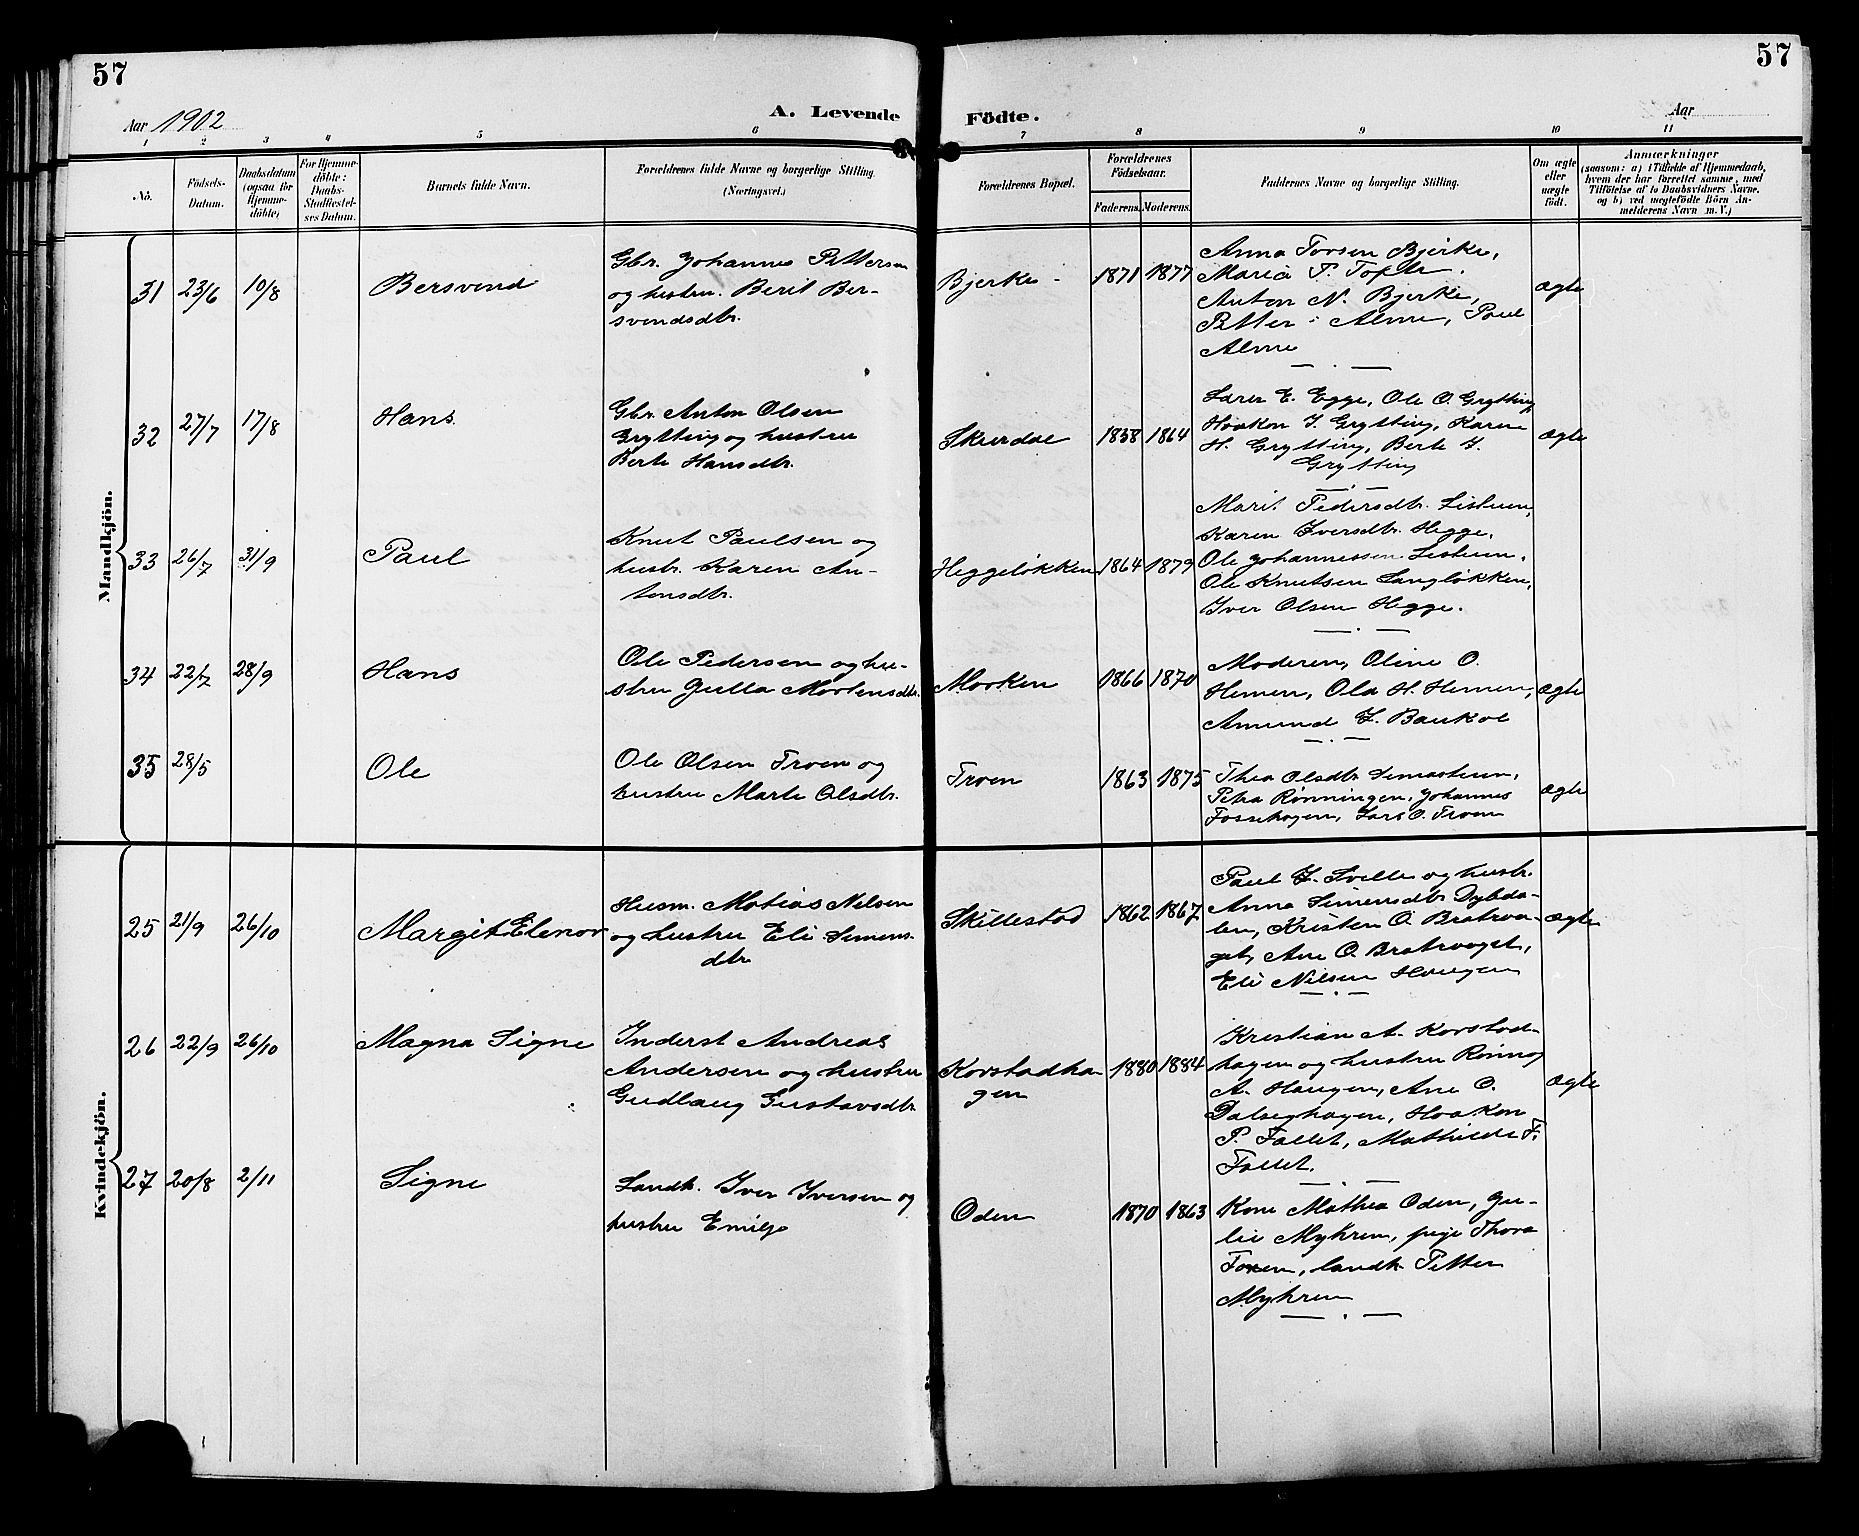 57
57
Aar 1902
A. Levende Födte.
Aar
1 2 3 4 5 6 7 8 9 10 11
No.
Födsels-Datum.
Daabsdatum (ogsaa for Hjemme-döbte)
For Hjemme-döbte: Daabs-Stadfæstel-ses Datum.
Barnets fulde Navn.
Forældrenes fulde Navne og borgerlige Stilling.
(Næringsvei.)
Forældrenes Bopæl.
Forældrenes Födselsaar.
Faderens. Moderens.
Faddernes Navne og borgerlige Stilling.
Om ægte eller uægte födt.
Anmærkninger
(saasom: a) i Tilfælde af Hjemmedaab,
hvem der har forrettet samme, med
Tilföielse af to Daabsvidners Navne.
og b) ved uægtefödte Börn An-
melderens Navn m. V.)
Mandkjön.
31 23/6 10/8 Bersvend
Gbr. Johannes Pettersen
og hustru Berit Ber-
svendsdtr.
Bjerke 1871 1877
Anna Torsen Bjerke,
Maria P. Tofte.
Anton N. Bjerke,
Petter Alme, Paul
Alme
ægte
32 27/7 17/8 Hans.
Gbr. Anton Olsen
Grytting og hustru
Berte Hansdtr.
Skurdal 1838 1864
Lars E. Egge, Ole O. Grytting
Haakon J. Grytting, Karen
H. Grytting, Berte J.
Grytting
ægte
33 26/7 31/9 Paul
Knut Paulsen og
hustr. Karen An-
tonsdtr.
Heggeløkken 1864 1879
Marit Pedersdtr. Listuen,
Karen Iversdtr. Hegge,
Ole Johannessen Listuen.
Ole Knutsen Langløkken,
Iver Olsen Hegge.
34 22/7 28/9 Hans
Ole Pedersen og hu-
stru Gulla Mortensdtr.
Morken 1866 1870
Moderen, Oline O.
Hemen, Ola H. Hemen,
Amund J. Baukol
ægte
35 28/5 Ole
Ole Olsen Troen og
hustru Marte Olsdtr.
Troen 1863 1875
Thea Olsdtr.
Petra Rønningen, Johannes
Fossehagen, Lars O. Troen
ægte
Kvindekjön.
25 21/9 26/10 Margit Elenor
Husm. Matias Nilsen
og hustru Eli Simens-
dtr.
Skillestad 1862 1867
Paul J. Svelle og hustr.
Anna Simensdtr. Dybda-
len, Kristen O. Bratvaa-
get, Ane O. Bratvaaget,
Eli Nilsen Haugen
ægte
26 22/9 26/10 Magna Signe
Inderst Andreas
Andersen og hustru
Gudlaug Gustavsdtr.
Korstadha-
gen
1880 1884
Kristian A. Korstad-
hagen og hustru Rønnog
A. Haugen, Ane O.
Dalseghagen, Haakon
P. Fallet, Mathilde F.
Fallet.
ægte
27 20/8 2/11 Signe
Landh. Iver Iversen og
hustru Emilje
Oden 1870 1863
Kone Mathea Oden, Ju-
lie Myhren, pige Thora
Foxen, landh. Petter
Myhren